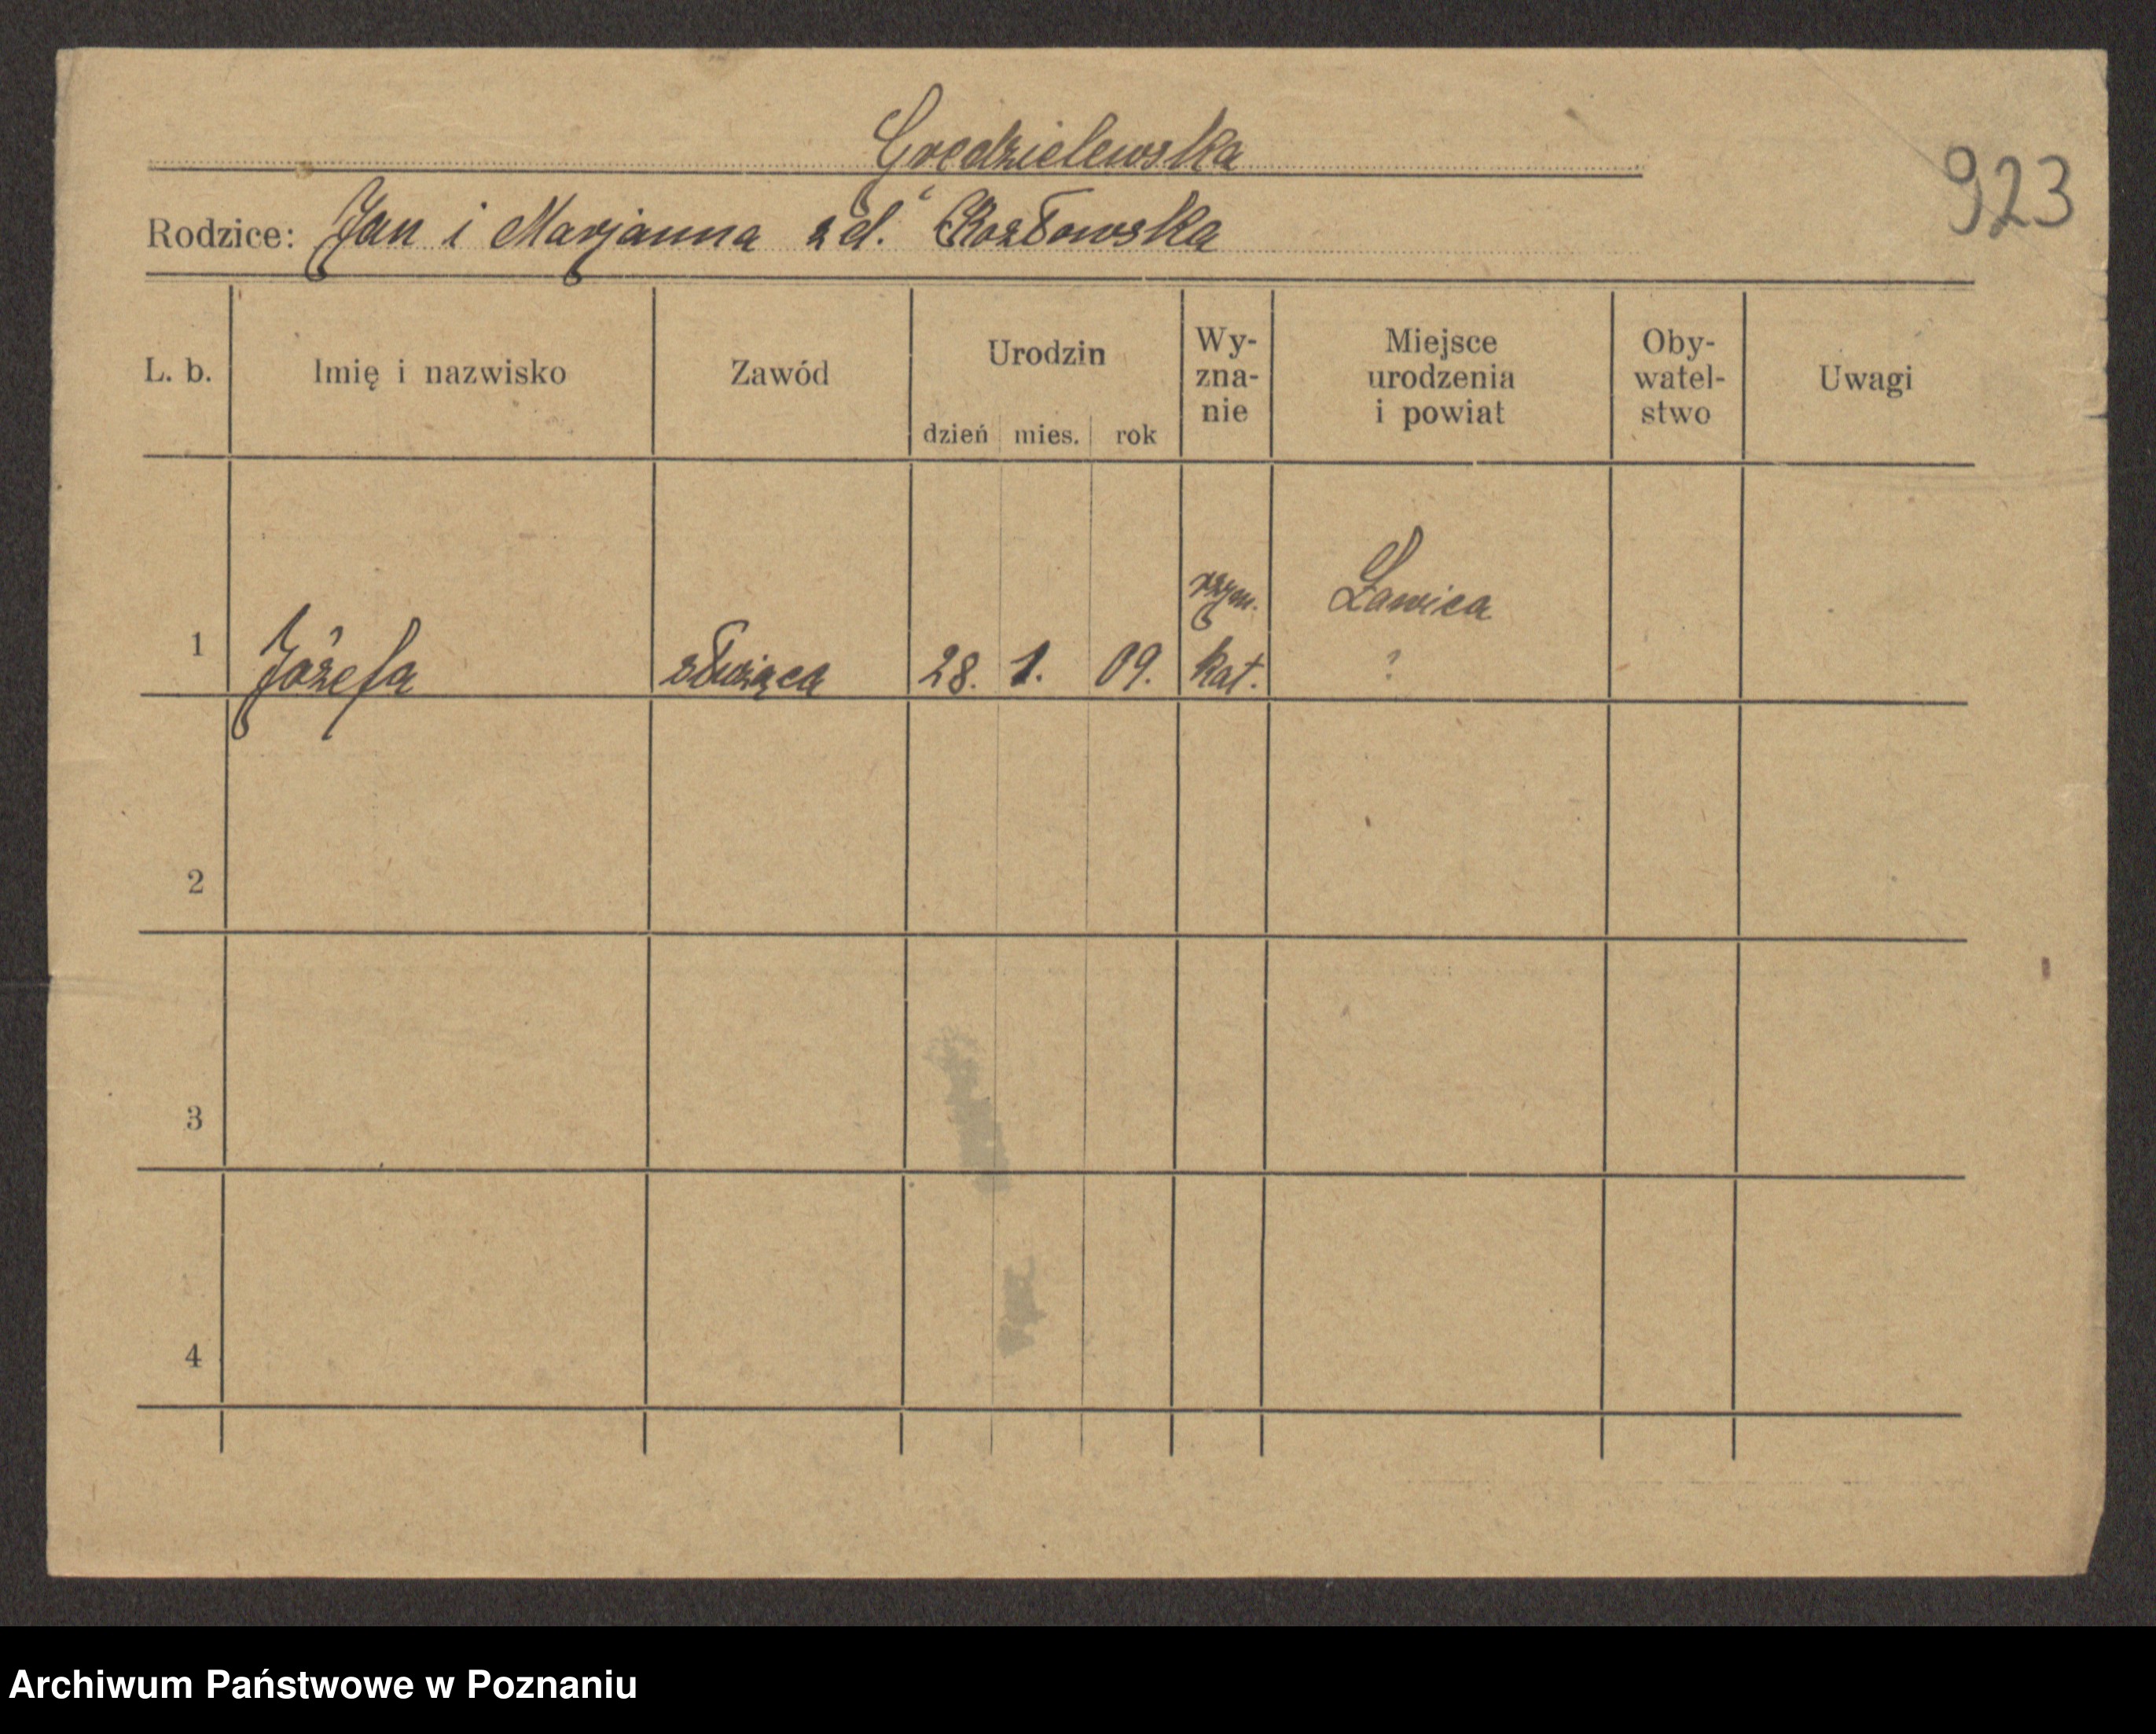 Gredzielewska
923
Rodzice: Jan i Marjanna z d. Kozłowska
L. b.
Imię i nazwisko
Zawód
Urodzin
dzień mies. rok
Wy-
zna-
nie
Miejsce
urodzenia
i powiat
Oby-
watel-
stwo
Uwagi
1 Józefa służąca 28. 1. 09. rzym. kat. Ławica
?
2
3
4
Archiwum Państwowe w Poznaniu